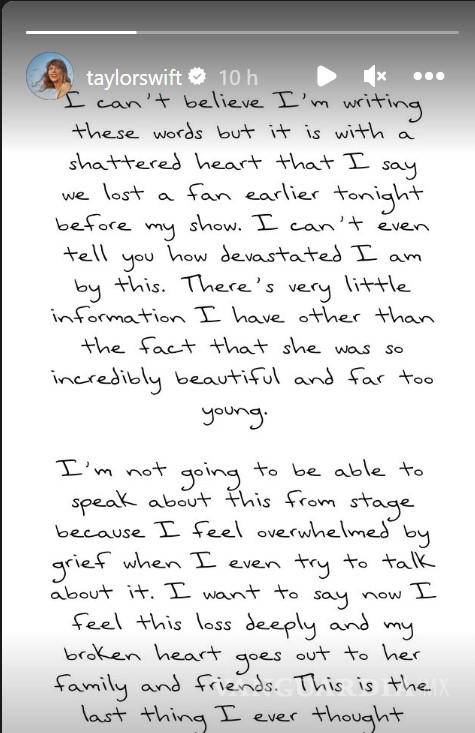 taylorswift 10 h
I can't believe I'm writing
these words but it is with a
shattered heart that I say
we lost a fan earlier tonight
before my show. I can't even
tell you how devastated I am
by this. There's very little
information I have other than
the fact that she was so
incredibly beautiful and far too
young.
I'm not going to be able to
speak about this from stage
because I feel overwhelmed by
grief when I even try to talk
about it. I want to say now I
feel this loss deeply and my
broken heart goes out to her
family and friends. This is the
VANGUARDIA MX
last thing I ever thought